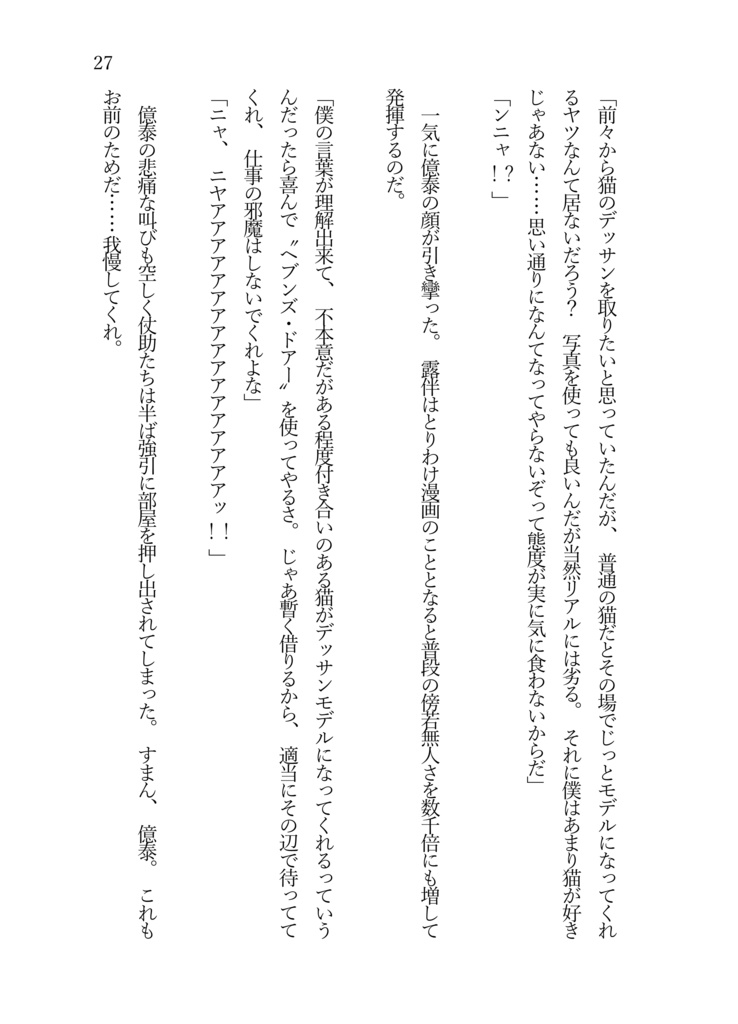 27
「前々から猫のデッサンを取りたいと思っていたんだが、普通の猫だとその場でじっとモデルになってくれ
るヤツなんて居ないだろう？　写真を使っても良いんだが当然リアルには劣る。それに僕はあまり猫が好き
じゃあない……思い通りになんてなってやらないぞって態度が実に気に食わないからだ」
「ンニャ！？」
一気に億泰の顔が引き攣った。露伴はとりわけ漫画のこととなると普段の傍若無人さを数千倍にも増して
発揮するのだ。
「僕の言葉が理解出来て、不本意だがある程度付き合いのある猫がデッサンモデルになってくれるっていう
んだったら喜んで〝ヘブンズ・ドアー〟を使ってやるさ。じゃあ暫く借りるから、適当にその辺で待ってて
くれ、仕事の邪魔はしないでくれよな」
「ニャ、ニヤアアアアアアアアアアアアアアアアッ！！」
億泰の悲痛な叫びも空しく仗助たちは半ば強引に部屋を押し出されてしまった。すまん、億泰。これも
お前のためだ……我慢してくれ。